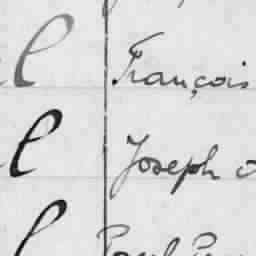 l François
l Joseph
l Paul